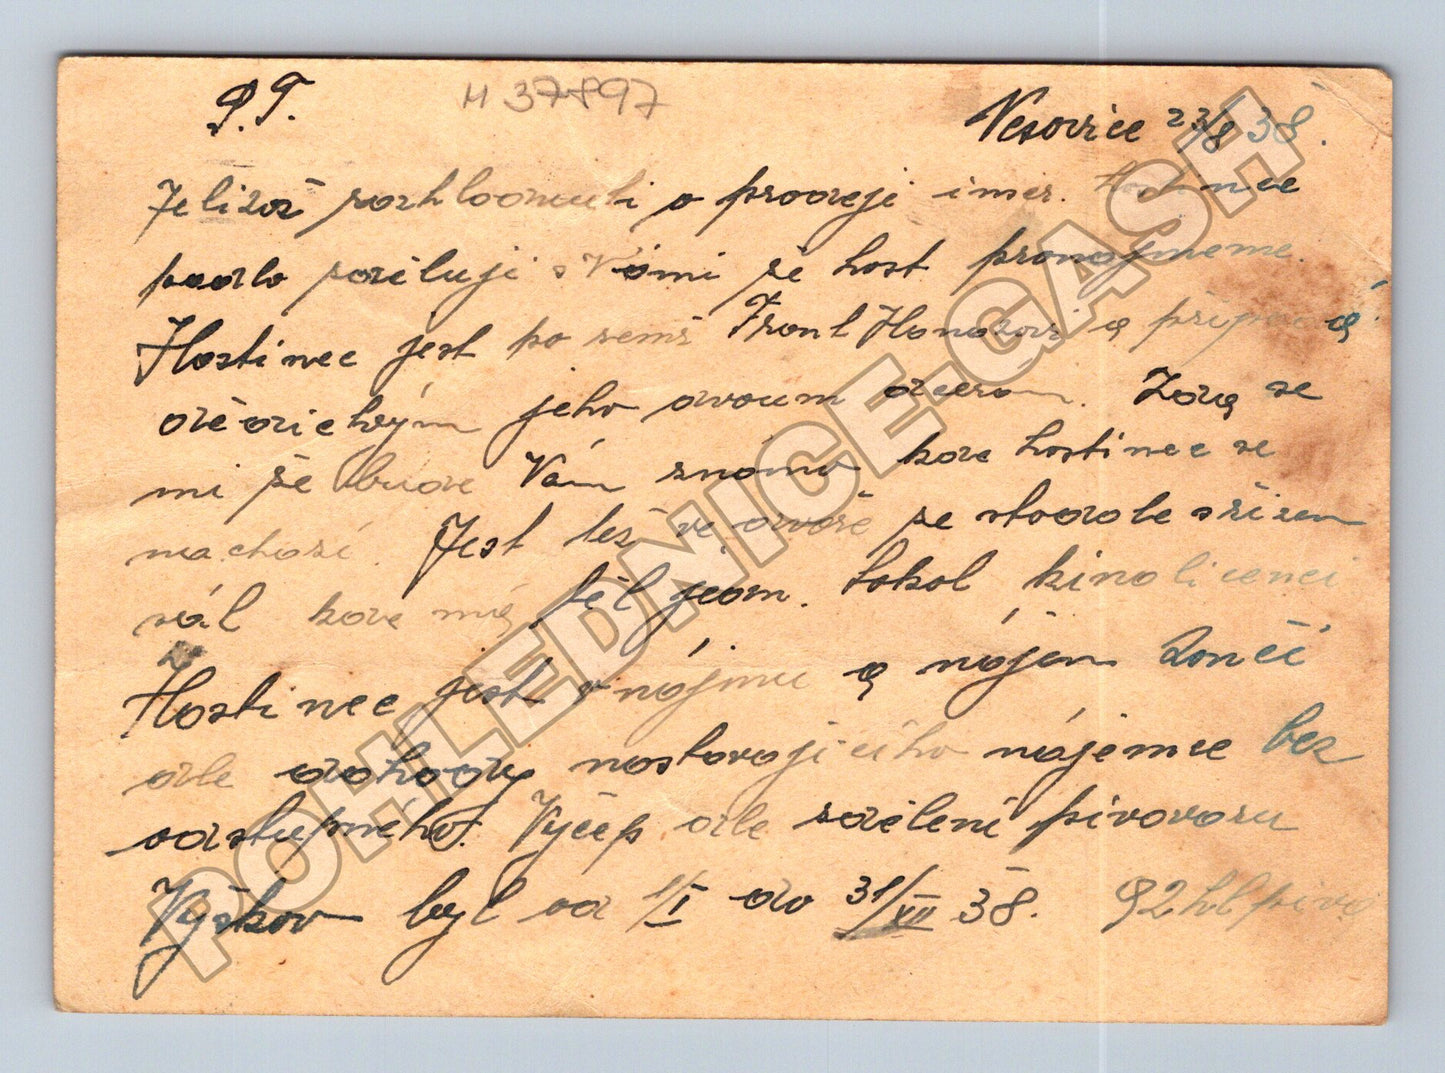 P.T.
H 37897
Nesovice 23/8 38.
Jelikož rozhodnutí o prodeji imer.
podlo sděluji Vámi že host pronajmeme.
Hostinec jest po zemř. Frant Hanákovi a připadá
dědickým jeho dvoum dceram. Zdá se
mi že bude Vám známo kde hostinec se
nachází. Jest též ve dvoře ze stodole zřízen
sál kde má těl jedn. Sokol kino licenci
Hostinec jest v nájmu a nájem končí
dle dohody nastávajícího nájemce bez
odstupného. Výčep dle sdělení pivovaru
Vyškov byl od 1/I do 31/XII 38. 92 hl piva
POHLEDNICE-CASH